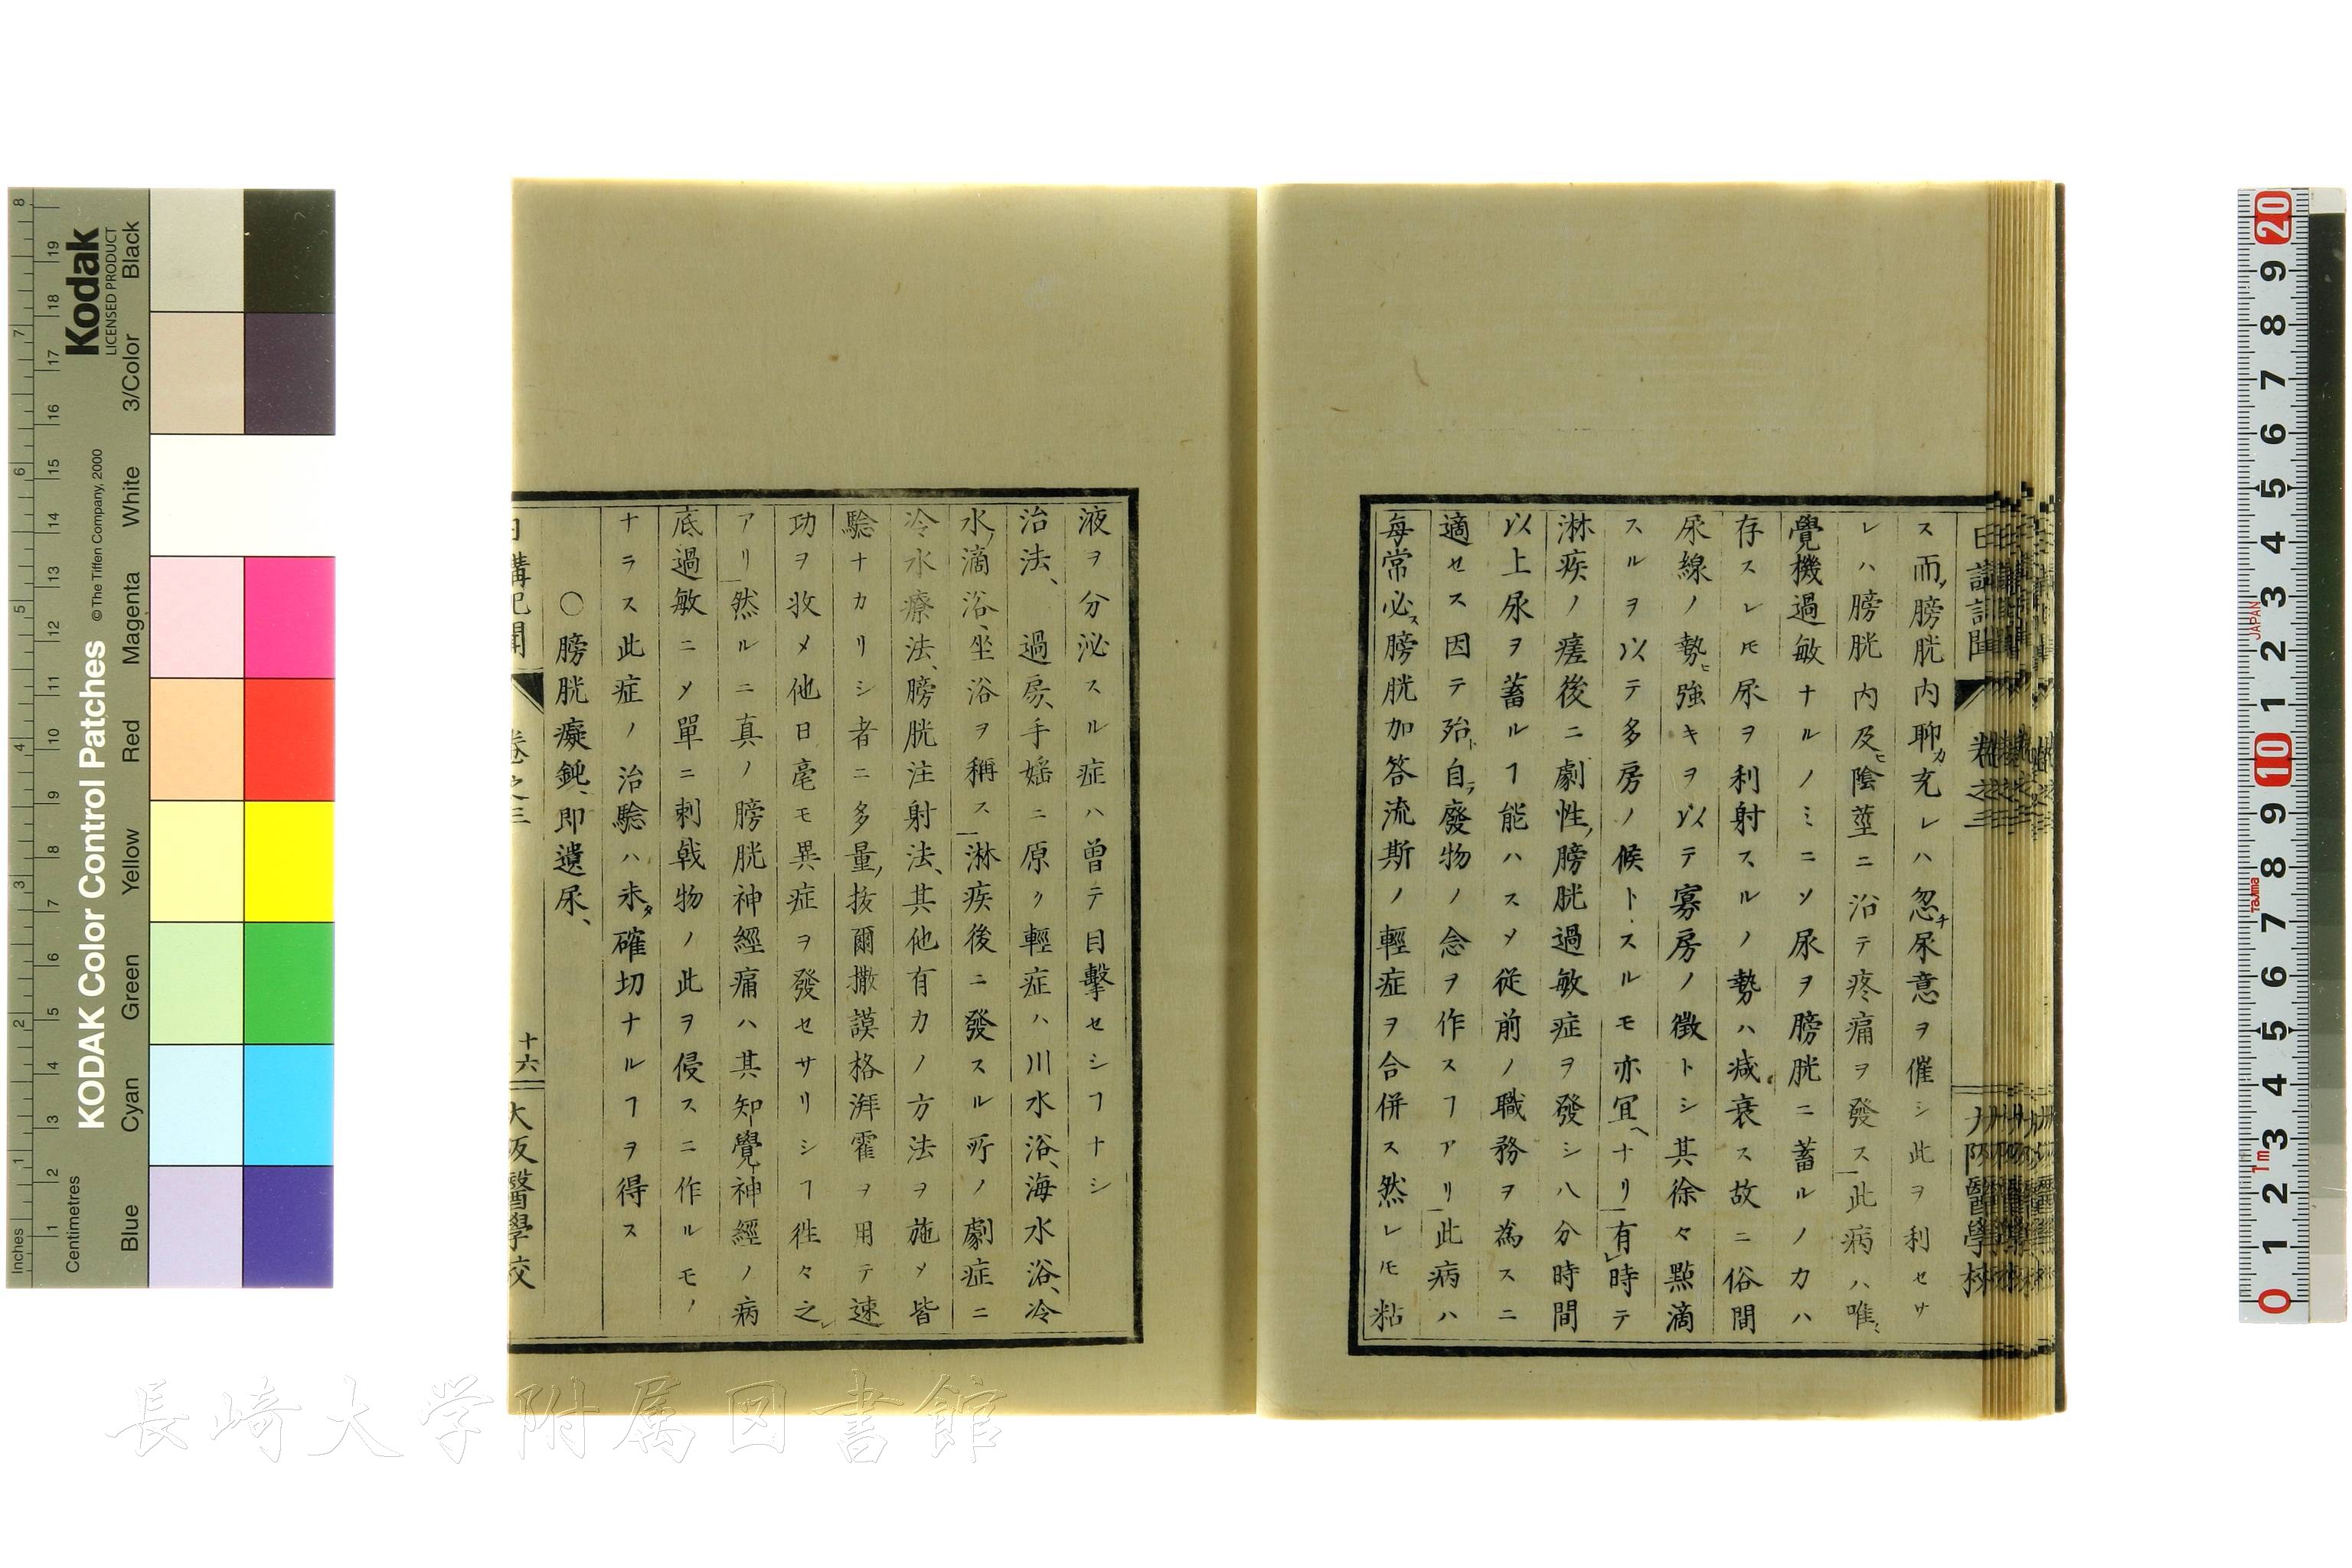 ス而ノ膀胱内聊カ充レハ忽チ尿意ヲ催シ此ヲ利セサ
レハ膀胱内及ヒ陰莖ニ沿テ疼痛ヲ發ス此病ハ唯ミ
覺機過敏ナルノミニソ尿ヲ膀胱ニ蓄ルノカハ
存スレ𪜈尿ヲ利射スルノ勢ハ减衰ス故ニ俗間
尿線ノ勢ヒ強キヲ以テ寡房ノ徴トシ其徐々點滴
スルヲ以テ多房ノ候トスルモ亦冝ヘナリ有時テ
淋疾ノ瘥後ニ劇性膀胱過敏症ヲ發シ八分時間
以上尿ヲ蓄ルヿ能ハスメ従前ノ職務ヲ為スニ
適セス因テ殆ト自ラ廢物ノ念ヲ作スヿアリ此病ハ
毎常必ス膀胱加答流斯ノ輕症ヲ合併ス然レ𪜈粘
液ヲ分泌スル症ハ曽テ目擊セシヿナシ
治法、過房、手婬ニ原ク輕症ハ川水浴、海水浴、冷
水滴浴、坐浴ヲ稱ス淋疾後ニ發スル所ノ劇症ニ
冷水療法、膀胱注射法、其他有力ノ方法ヲ施メ皆
驗ナカリシ者ニ多量抜爾撒謨格湃霍ヲ用テ速
功ヲ收メ他日毫モ異症ヲ發セサリシヿ徃々之レ
アリ然ルニ真ノ膀胱神經痛ハ其知覺神經ノ病
底過敏ニメ單ニ刺戟物ノ此ヲ侵スニ作ルモノ
ナラス此症ノ治驗ハ未タ確切ナルヿヲ得ス
〇膀胱癡鈍、即遺尿、
日講記聞 卷之三 十六 大阪醫學校
長崎大学附属図書館
KODAK Color Control Patches
© The Tiffen Company, 2000
Kodak
LICENSED PRODUCT
Inches
Centimetres
Blue Cyan Green Yellow Red Magenta White 3/Color Black
JAPAN
Tajima
1m